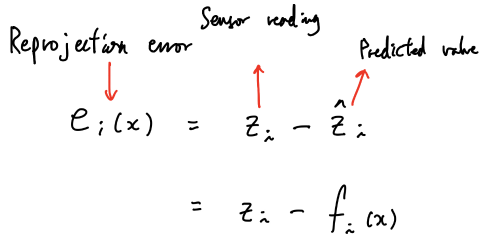 Sensor reading
Reprojection error
Predicted value
e_i(x) = z_i - ẑ_i
= z_i - f_i(x)